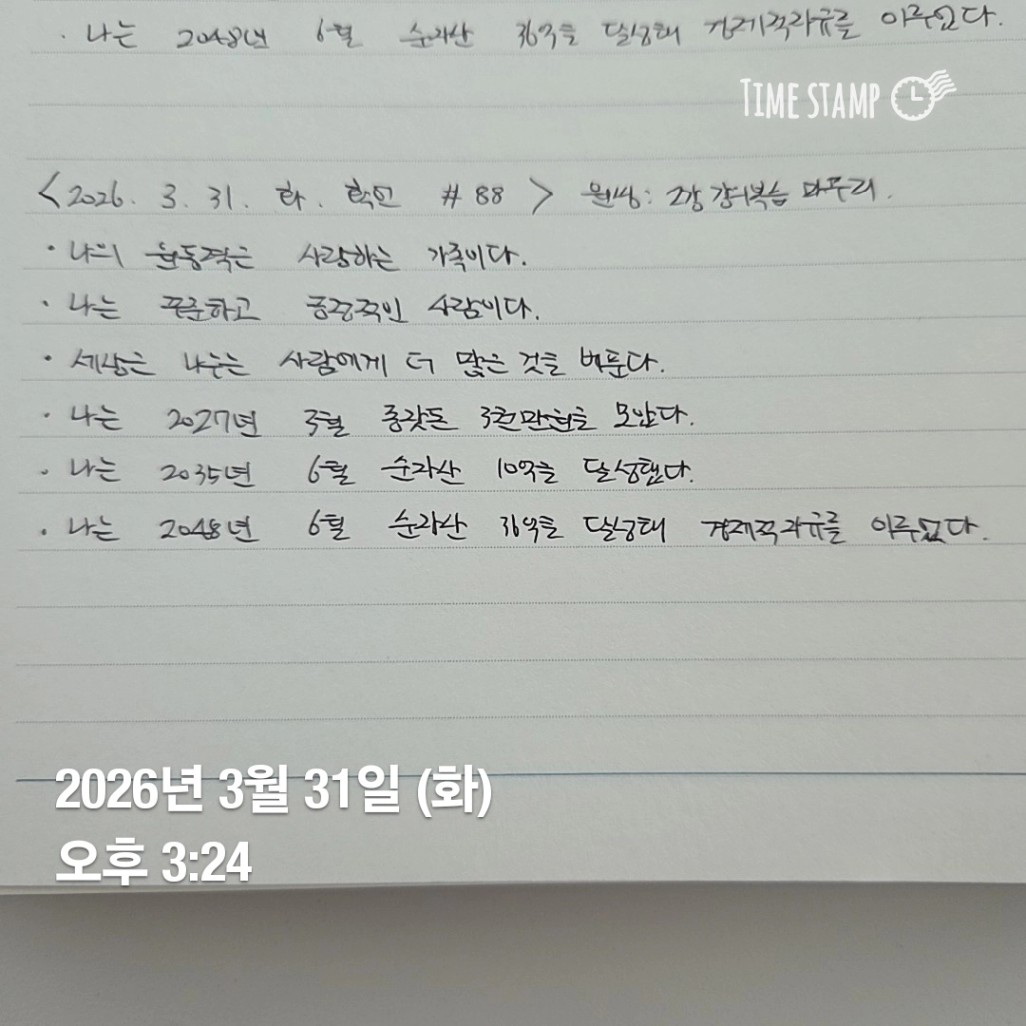 · 나는 2048년 6월 순자산 36억을 달성해 경제적자유를 이루었다.
TIME STAMP
<2026. 3. 31. 화. 확언 #88> 원씽: 2장 강의복습 마무리.
· 나의 원동력은 사랑하는 가족이다.
· 나는 꾸준하고 긍정적인 사람이다.
· 세상은 나누는 사람에게 더 많은 것을 베푼다.
· 나는 2027년 3월 종잣돈 3천만원을 모았다.
· 나는 2035년 6월 순자산 10억을 달성했다.
· 나는 2048년 6월 순자산 36억을 달성해 경제적자유를 이루었다.
2026년 3월 31일 (화)
오후 3:24